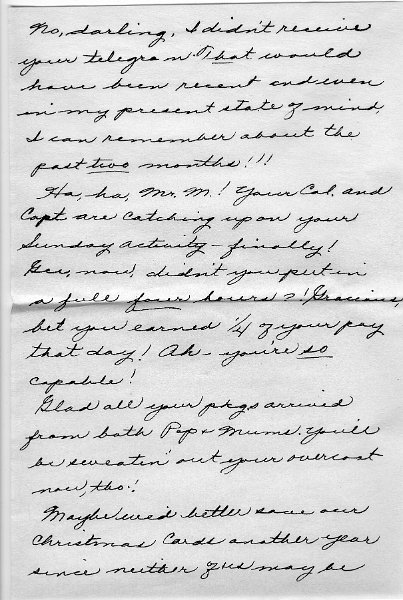 No, darling, I didn't receive
your telegram. That would
have been recent and even
in my present state of mind,
I can remember about the
past two months!!!
Ha, ha, Mr. M.! Your Col. and
Capt are catching up on your
Sunday activity - finally!
Gee, now, didn't you put in
a full four hours?! Gracious,
bet you earned 1/4 of your pay
that day! Ah - you're so
capable!
Glad all your pkgs arrived
from both Pop & Mums. You'll
be sweatin' out your overcoat
now, tho!
Maybe we'd better save our
Christmas Cards another year
since neither of us may be